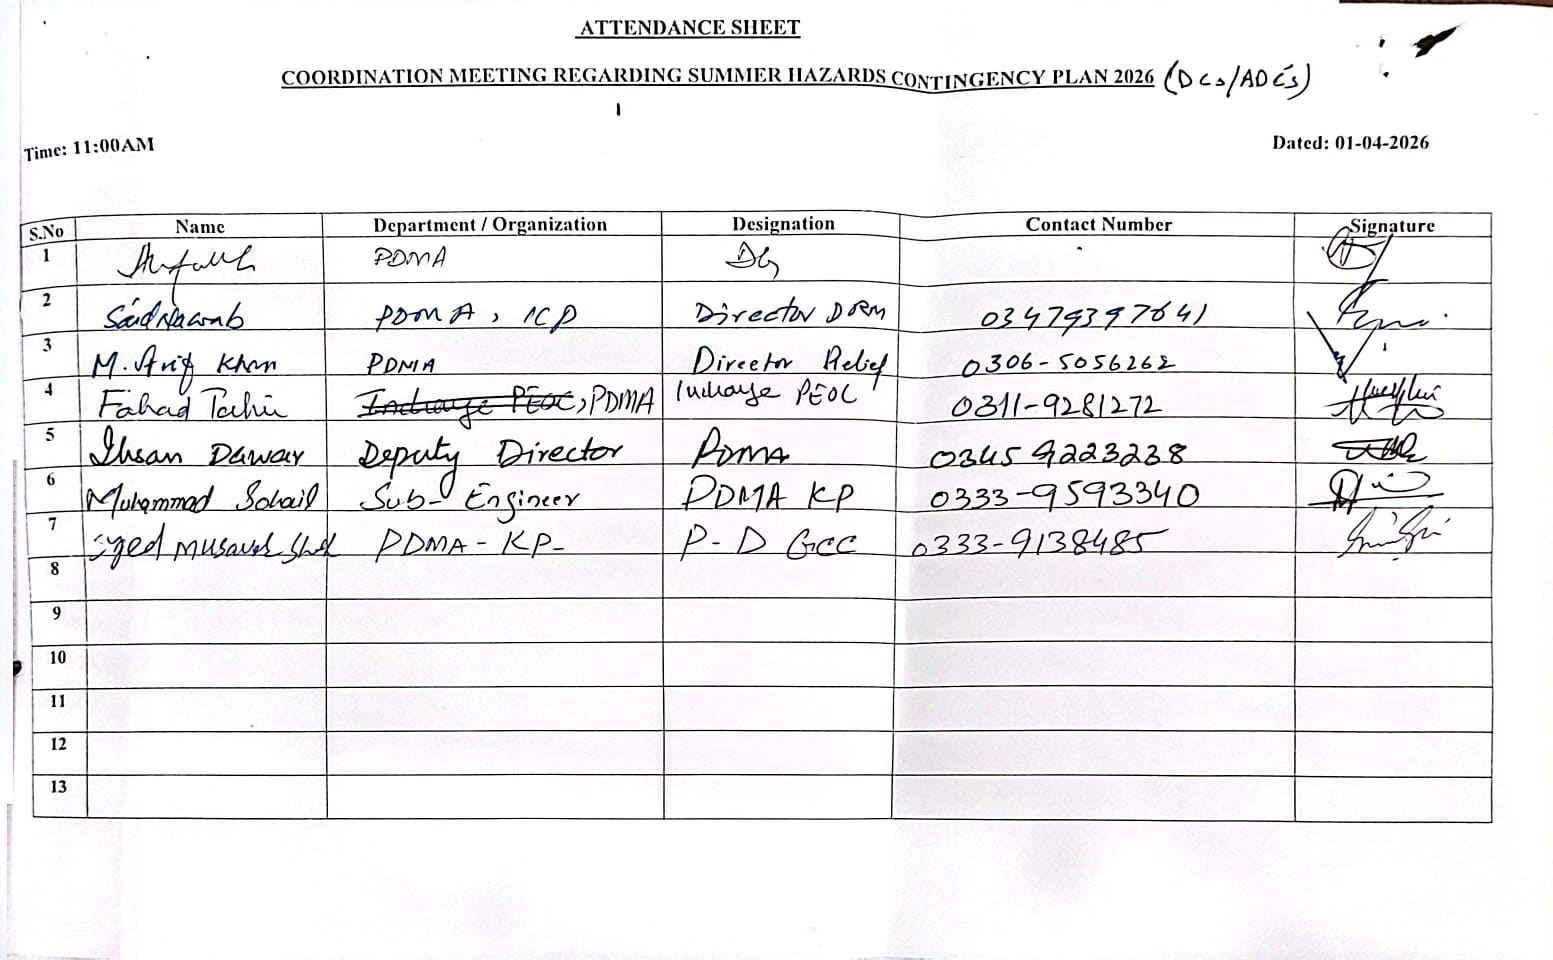 ATTENDANCE SHEET
COORDINATION MEETING REGARDING SUMMER HAZARDS CONTINGENCY PLAN 2026 (DCs/ADCs)
Time: 11:00AM
Dated: 01-04-2026
S.No Name Department / Organization Designation Contact Number Signature
1 PDMA DG
2 Said Nawab PDMA, KP Director DRM 03479397641
3 M. Arif Khan PDMA Director Relief 0306-5056262
4 Fahad Tahir Incharge PEOC, PDMA Incharge PEOC 0311-9281272
5 Ihsan Dawar Deputy Director PDMA 0345 9223238
6 Muhammad Sohail Sub-Engineer PDMA KP 0333-9593340
7 Syed Musavir Shah PDMA-KP- P-D GCC 0333-9138485
8
9
10
11
12
13